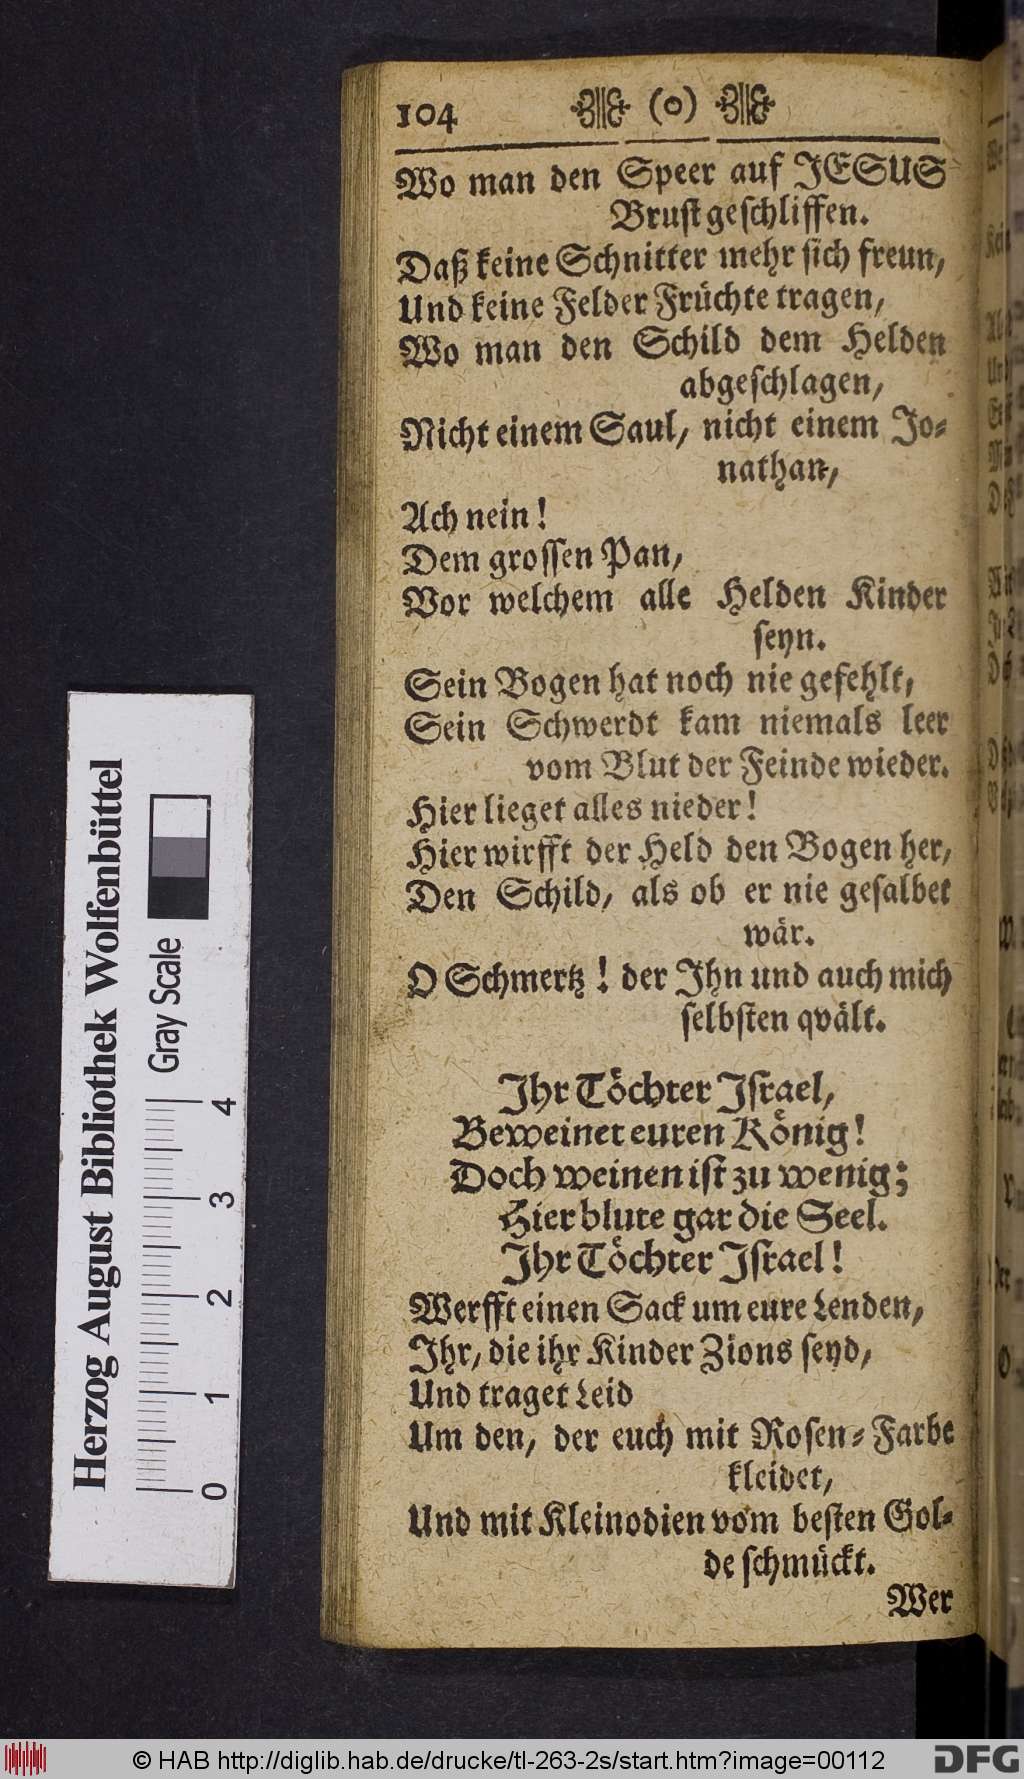 104 (o)
Wo man den Speer auf JESUS
Brust geschliffen.
Daß keine Schnitter mehr sich freun,
Und keine Felder Früchte tragen,
Wo man den Schild dem Helden
abgeschlagen,
Nicht einem Saul, nicht einem Jo-
nathan,
Ach nein!
Dem grossen Pan,
Vor welchem alle Helden Kinder
seyn.
Sein Bogen hat noch nie gefehlt,
Sein Schwerdt kam niemals leer
vom Blut der Feinde wieder.
Hier lieget alles nieder!
Hier wirfft der Held den Bogen her,
Den Schild, als ob er nie gesalbet
wär.
O Schmertz! der Ihn und auch mich
selbsten qvält.
Ihr Töchter Israel,
Beweinet euren König!
Doch weinen ist zu wenig;
Hier blute gar die Seel.
Ihr Töchter Israel!
Werfft einen Sack um eure Lenden,
Ihr, die ihr Kinder Zions seyd,
Und traget Leid
Um den, der euch mit Rosen-Farbe
kleidet,
Und mit Kleinodien vom besten Gol-
de schmückt.
Wer
Herzog August Bibliothek Wolfenbüttel
Gray Scale
0 1 2 3 4
© HAB http://diglib.hab.de/drucke/tl-263-2s/start.htm?image=00112
DFG